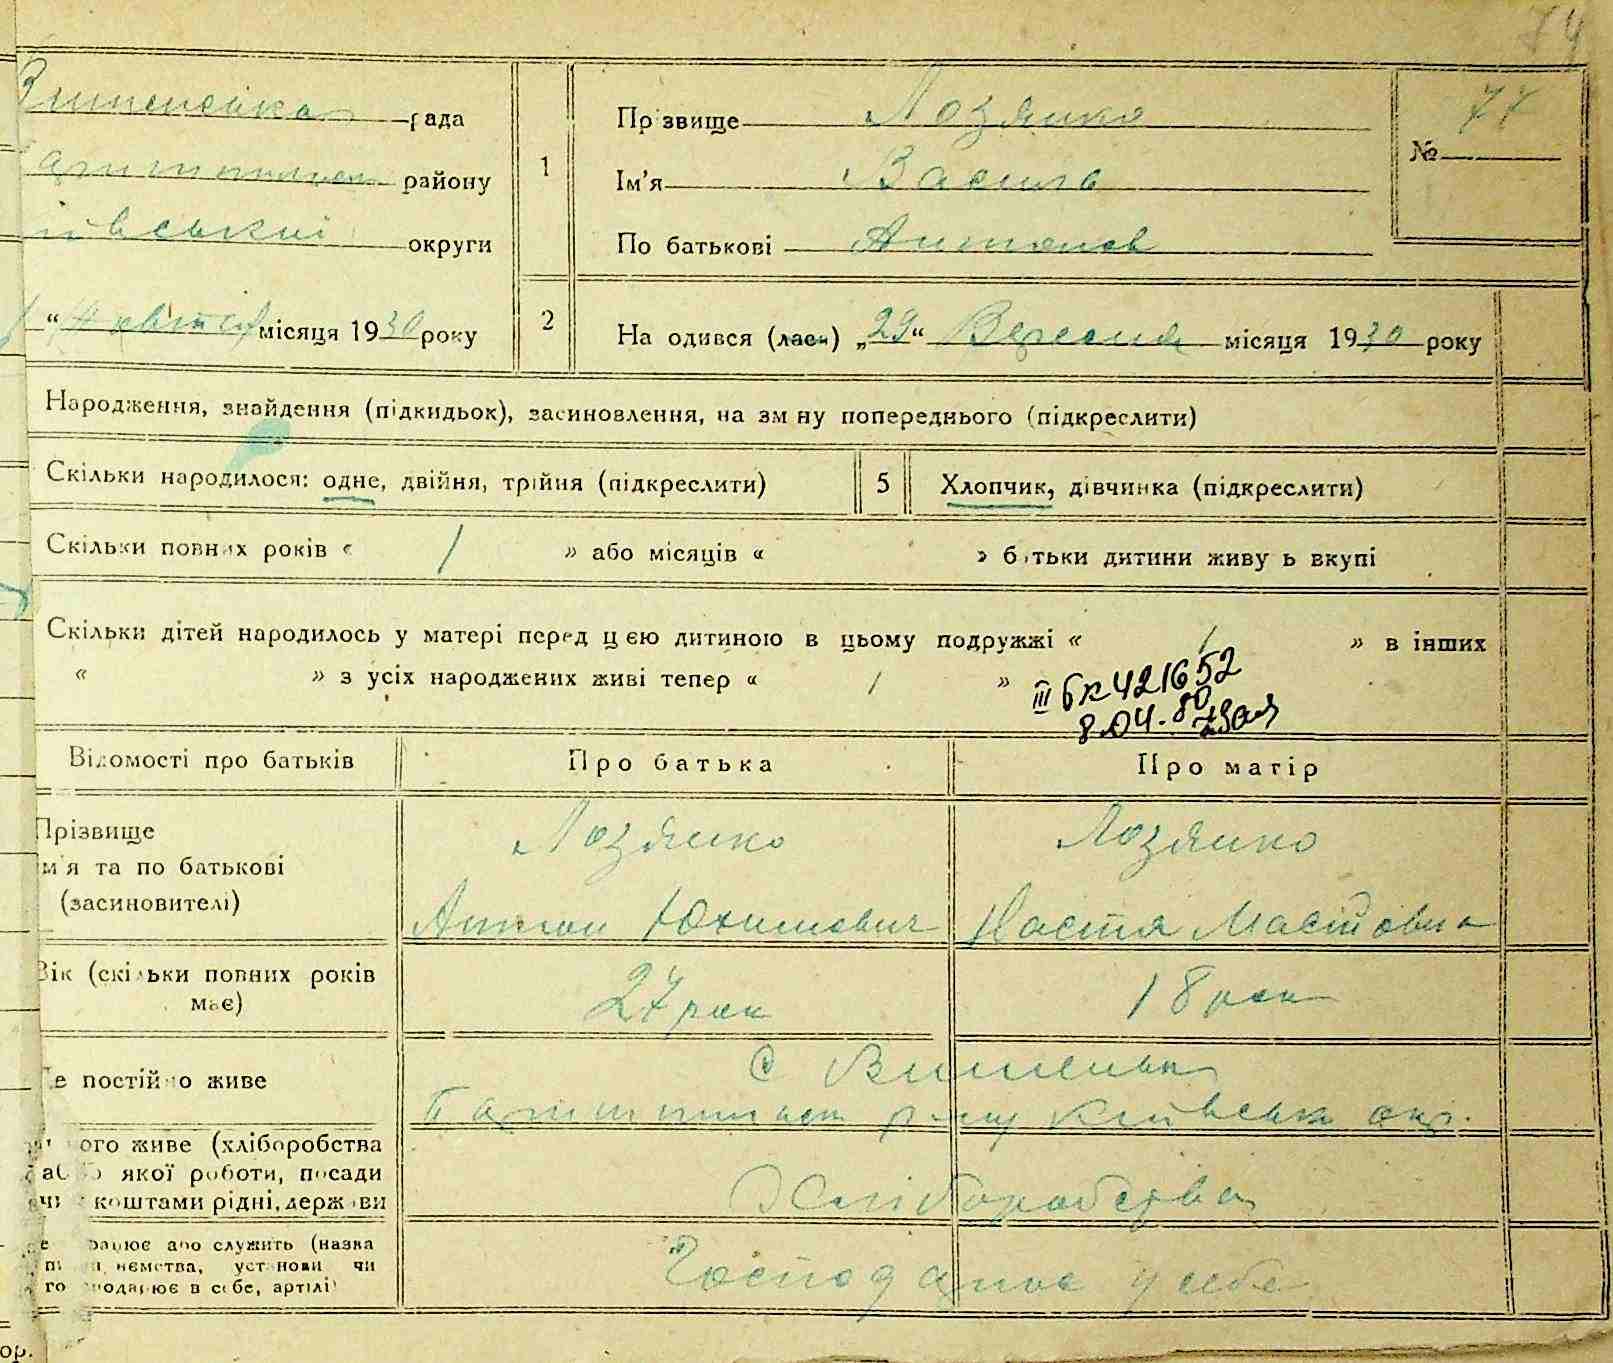 74
рада
району
округи
місяця 1930 року
1
Прізвище Лозянко
Ім'я Василь
По батькові Антонов
№ 77
2
На одився (лась) „29“ Вересня місяця 1930 року
Народження, знайдення (підкидьок), засиновлення, на зм ну попереднього (підкреслити)
Скільки народилося: одне, двійня, трійня (підкреслити)
5
Хлопчик, дівчинка (підкреслити)
Скільки повних років « 1 » або місяців « » батьки дитини живу ь вкупі
Скільки дітей народилось у матері перед цією дитиною в цьому подружжі « 1 » в інших
« » з усіх народжених живі тепер « 1 »
III БК 421652
8.04.80
Відомості про батьків
Про батька
Про матір
Прізвище
м'я та по батькові
(засиновителі)
Лозянко
Антон Юхимович
Лозянко
Настя
Вік (скільки повних років
має)
27 рок
18 рок
е постійно живе
С Вишеньки
Київська окр.
ого живе (хліборобства
якої роботи, посади
чи коштами рідні, держави
Хліборобства
рацює або служить (назва
ємства, установи чи
господарює в себе, артілі
Господарює у себе
ор.